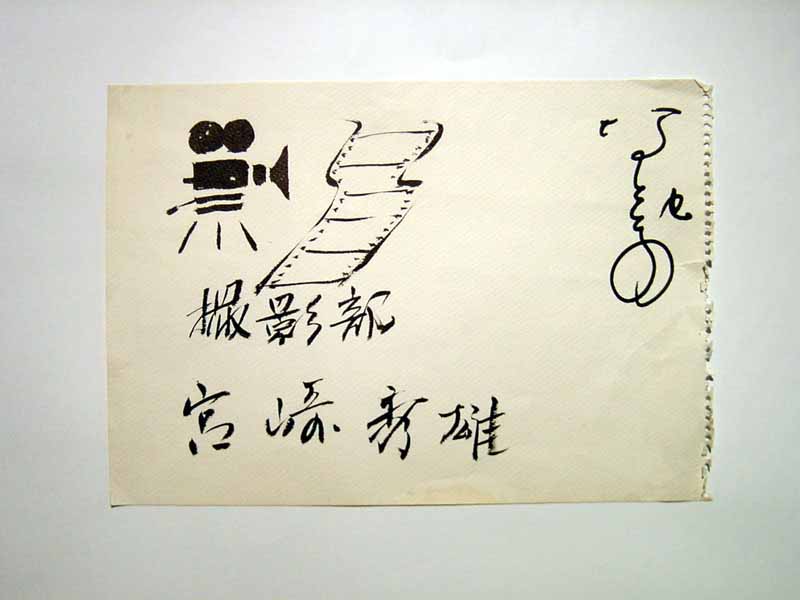 撮影部
宮崎秀雄